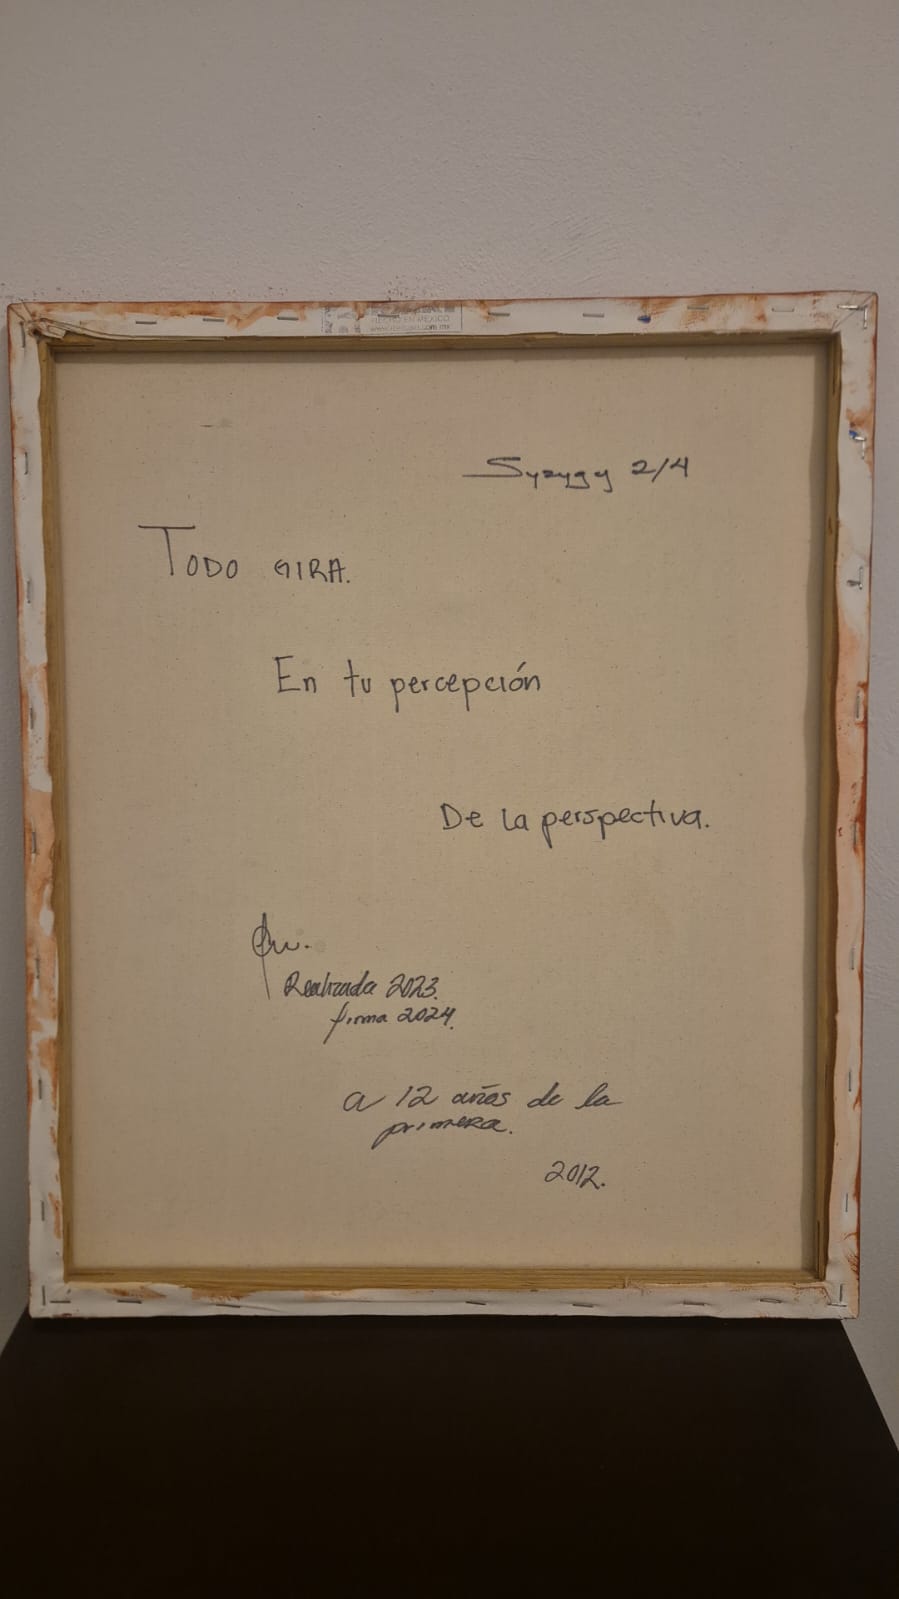 HECHO EN MÉXICO
Syzygy 2/4
TODO GIRA.
En tu percepción
De la perspectiva.
Realizada 2023.
firma 2024.
a 12 años de la
primera.
2012.